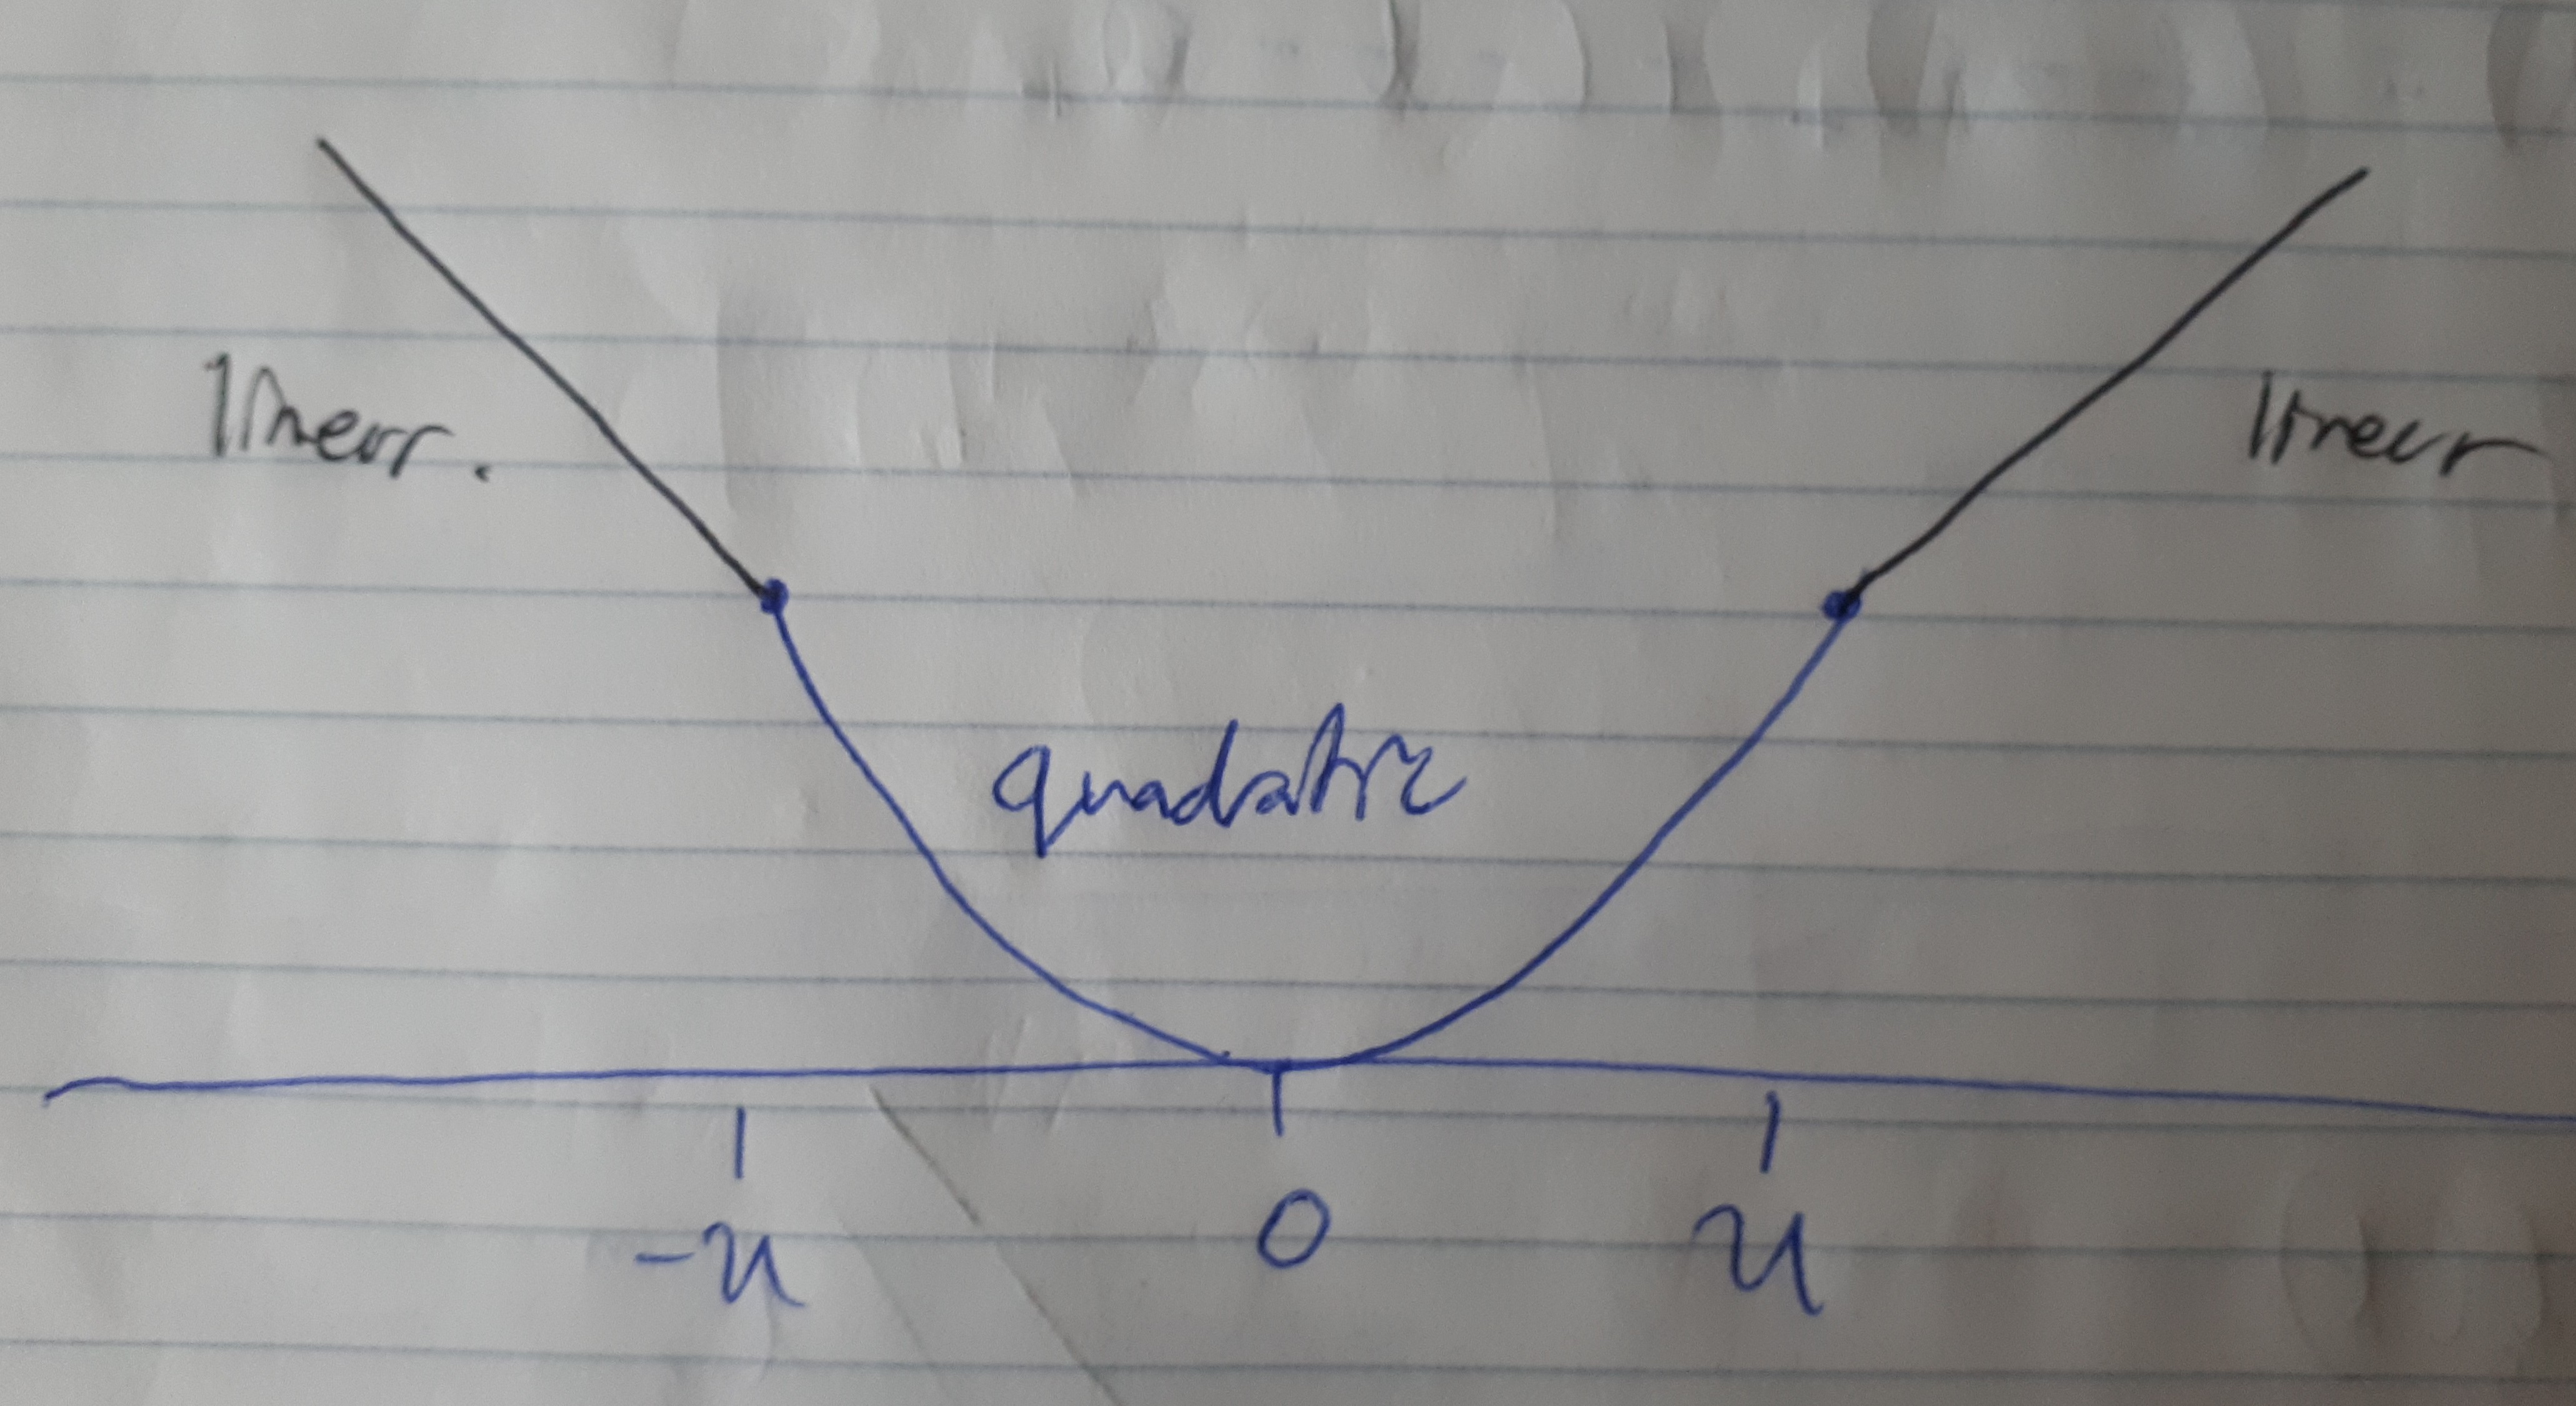 linear.
linear
quadratic
-u 0 u